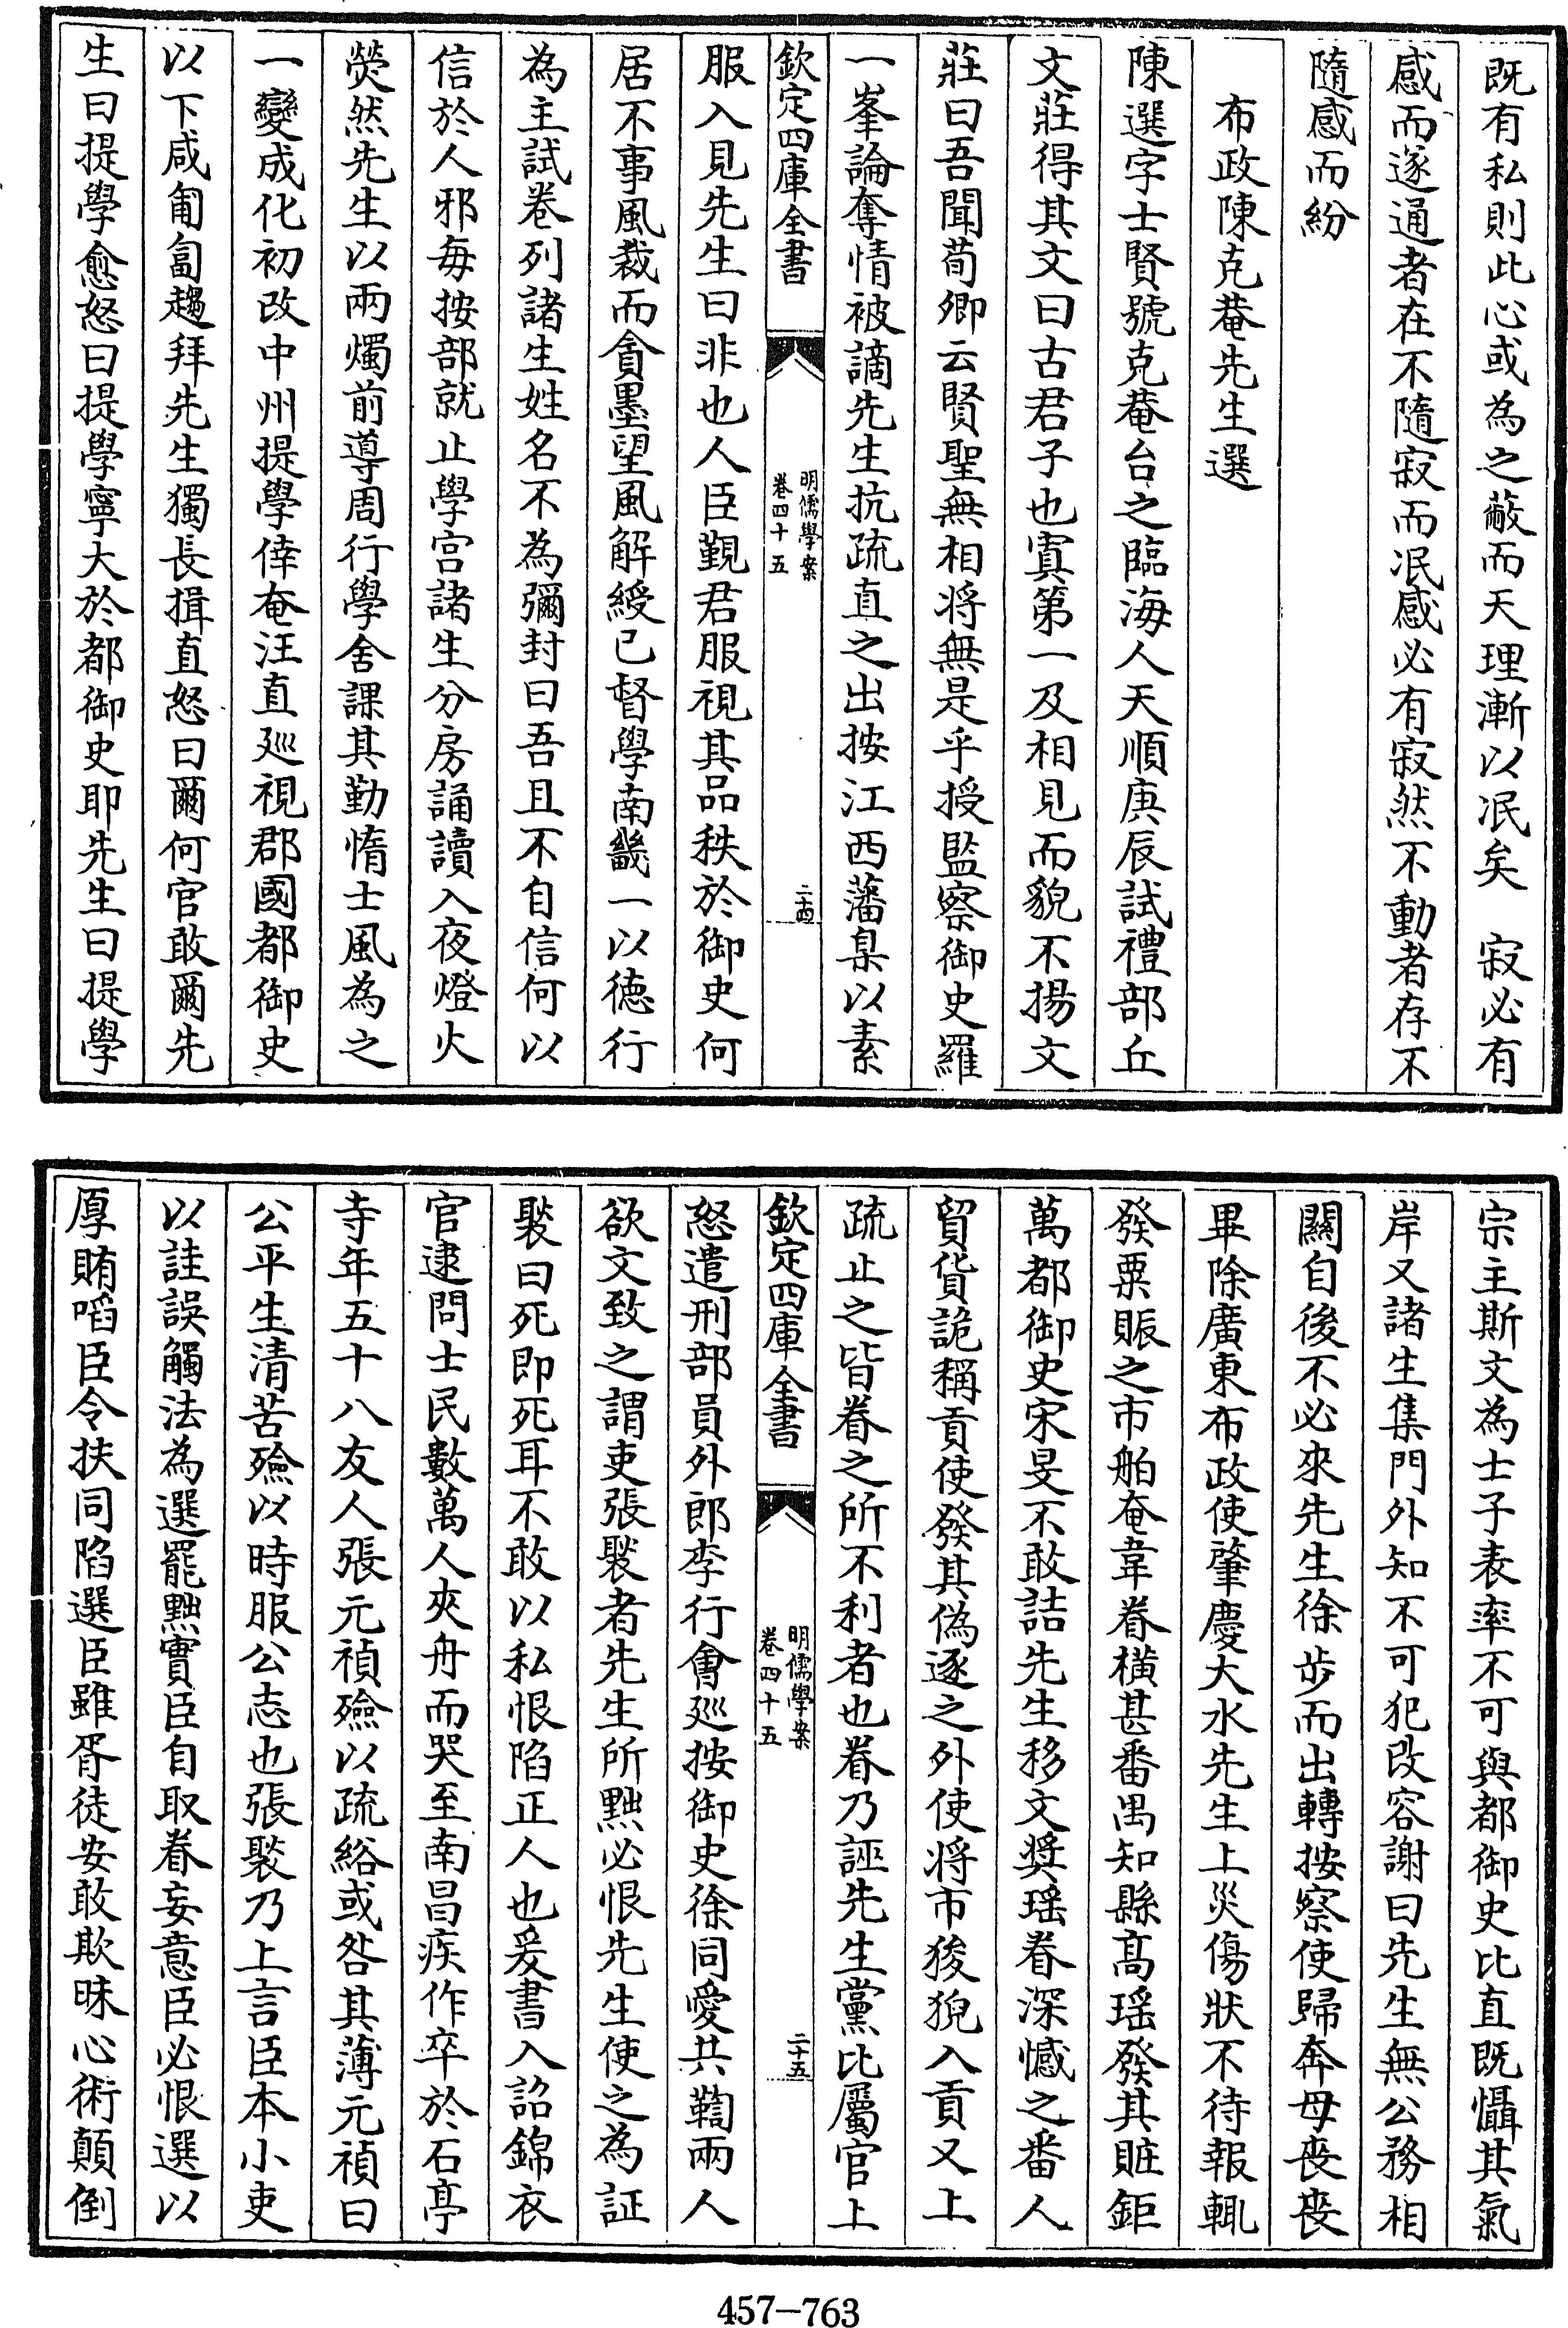 既有私則此心或為之蔽而天理漸以泯矣　寂必有
感而遂通者在不隨寂而泯感必有寂然不動者存不
隨感而紛
布政陳克菴先生選
陳選字士賢號克菴台之臨海人天順庚辰試禮部丘
文莊得其文曰古君子也寘第一及相見而貌不揚文
莊曰吾聞荀卿云賢聖無相將無是乎授監察御史羅
一峯論奪情被謫先生抗疏直之出按江西藩臬以素
欽定四庫全書
明儒學案
卷四十五
二十四
服入見先生曰非也人臣覲君服視其品秩於御史何
居不事風裁而貪墨望風解綬已督學南畿一以徳行
為主試卷列諸生姓名不為彌封曰吾且不自信何以
信於人邪每按部就止學宫諸生分房誦讀入夜燈火
熒然先生以兩燭前導周行學舍課其勤惰士風為之
一變成化初改中州提學倖奄汪直廵視郡國都御史
以下咸匍匐趨拜先生獨長揖直怒曰爾何官敢爾先
生曰提學愈怒曰提學寧大於都御史耶先生曰提學
宗主斯文為士子表率不可與都御史比直既懾其氣
岸又諸生集門外知不可犯改容謝曰先生無公務相
關自後不必來先生徐步而出轉按察使歸奔母丧丧
畢除廣東布政使肇慶大水先生上災傷狀不待報輒
發粟賑之市舶奄韋眷横甚番禺知縣髙瑶發其賍鉅
萬都御史宋旻不敢詰先生移文奬瑶眷深憾之番人
貿貨詭稱貢使發其偽逐之外使将市狻猊入貢又上
疏止之皆眷之所不利者也眷乃誣先生黨比屬官上
欽定四庫全書
明儒學案
卷四十五
二十五
怒遣刑部員外郎李行會廵按御史徐同愛共鞫兩人
欲文致之謂吏張褧者先生所黜必恨先生使之為証
褧曰死即死耳不敢以私恨陷正人也爰書入詔錦衣
官逮問士民數萬人夾舟而哭至南昌疾作卒於石亭
寺年五十八友人張元禎殮以疏綌或咎其薄元禎曰
公平生清苦殮以時服公志也張褧乃上言臣本小吏
以註誤觸法為選罷黜實臣自取眷妄意臣必恨選以
厚賄啗臣令扶同陷選臣雖胥徒安敢欺昧心術顛倒
457-763